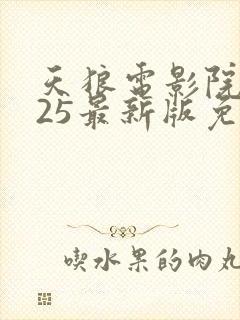 天狼电影院
25最新版免
喫水果的肉丸